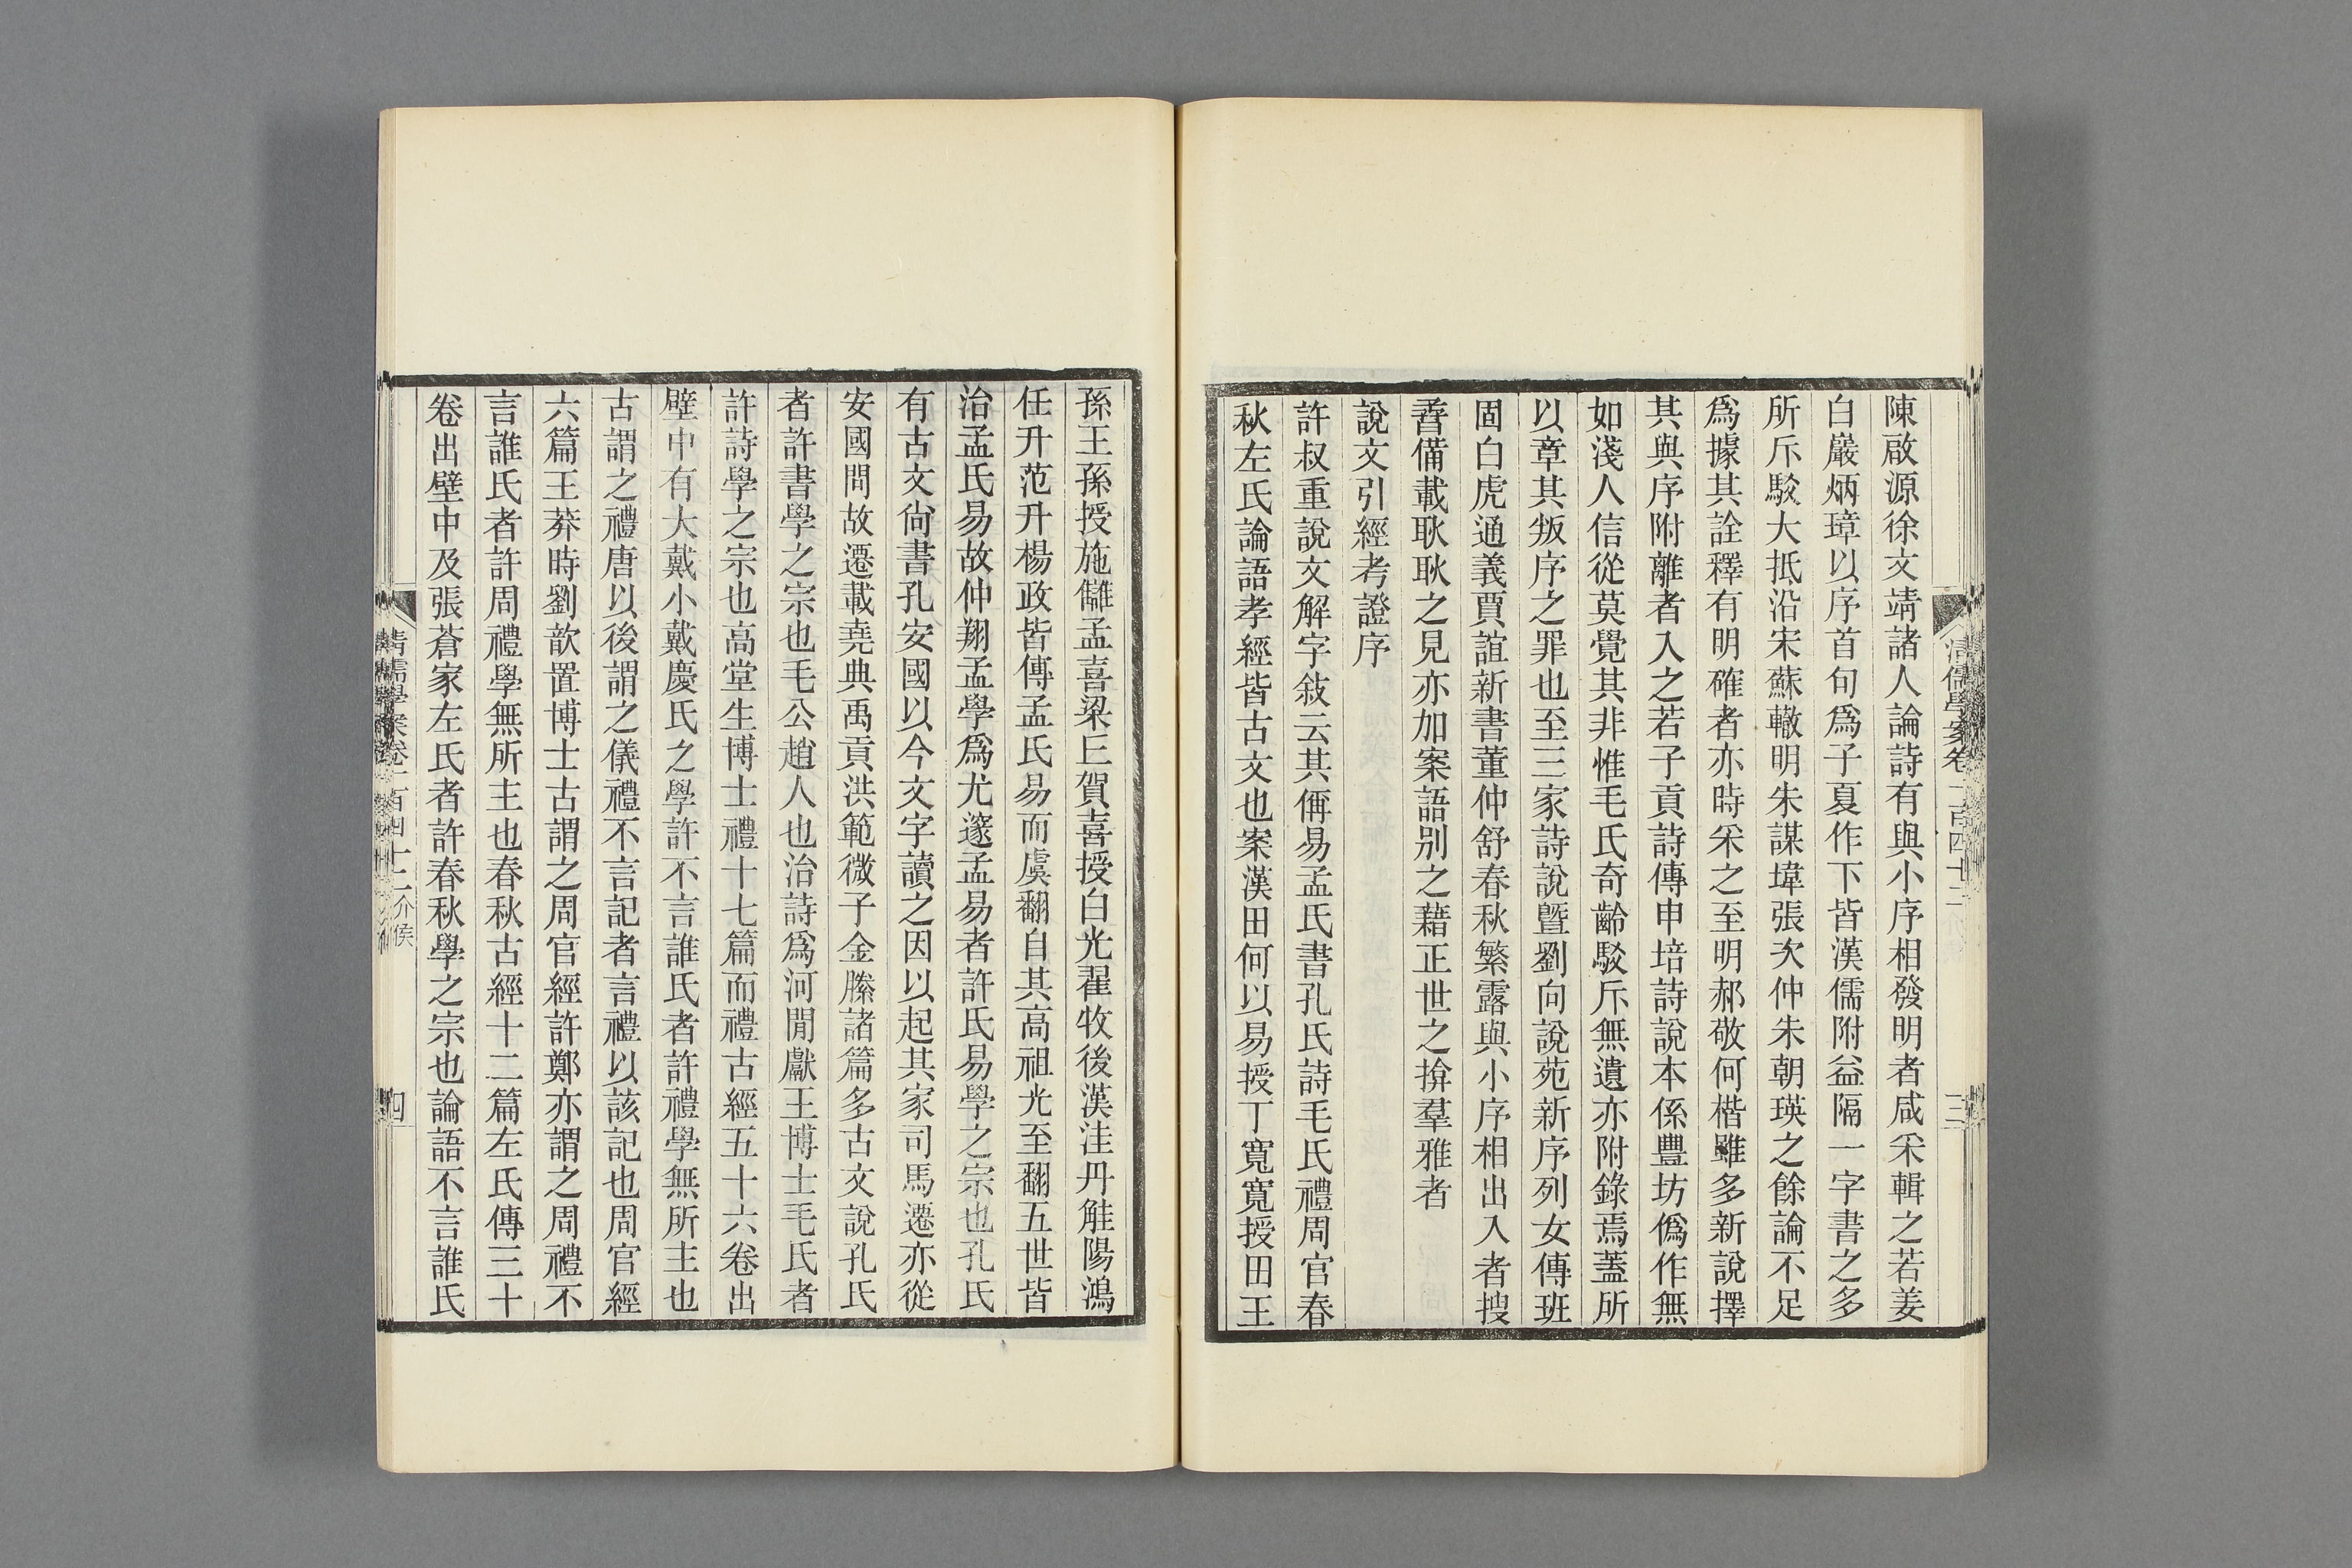 陳啟源徐文靖諸人論詩有與小序相發明者咸采輯之若姜
白巖炳璋以序首句爲子夏作下皆漢儒附益隔一字書之多
所斥駮大抵沿宋蘇轍明朱謀㙔張次仲朱朝瑛之餘論不足
爲據其詮釋有明確者亦時采之至明郝敬何楷雖多新說擇
其與序附離者入之若子貢詩傳申培詩說本係豐坊僞作無
如淺人信從莫覺其非惟毛氏奇齡駮斥無遺亦附錄焉蓋所
以章其叛序之罪也至三家詩說曁劉向說苑新序列女傳班
固白虎通義賈誼新書董仲舒春秋繁露與小序相出入者搜
者備載耿耿之見亦加案語別之藉正世之揜羣雅者
說文引經考證序
許叔重說文解字敍云其偁易孟氏書孔氏詩毛氏禮周官春
秋左氏論語孝經皆古文也案漢田何以易授丁寬寬授田王
孫王孫授施讎孟喜梁丘賀喜授白光翟牧後漢洼丹觟陽鴻
任升范升楊政皆傳孟氏易而虞翻自其高祖光至翻五世皆
治孟氏易故仲翔孟學爲尤邃孟易者許氏易學之宗也孔氏
有古文尙書孔安國以今文字讀之因以起其家司馬遷亦從
安國問故遷載堯典禹貢洪範微子金縢諸篇多古文說孔氏
者許書學之宗也毛公趙人也治詩爲河閒獻王博士毛氏者
許詩學之宗也高堂生博士禮十七篇而禮古經五十六卷出
壁中有大戴小戴慶氏之學許不言誰氏者許禮學無所主也
古謂之禮唐以後謂之儀禮不言記者言禮以該記也周官經
六篇王莽時劉歆置博士古謂之周官經許鄭亦謂之周禮不
言誰氏者許周禮學無所主也春秋古經十二篇左氏傳三十
卷出壁中及張蒼家左氏者許春秋學之宗也論語不言誰氏
清儒學案卷一百四十二
三
清儒學案卷一百四十二介侯
四